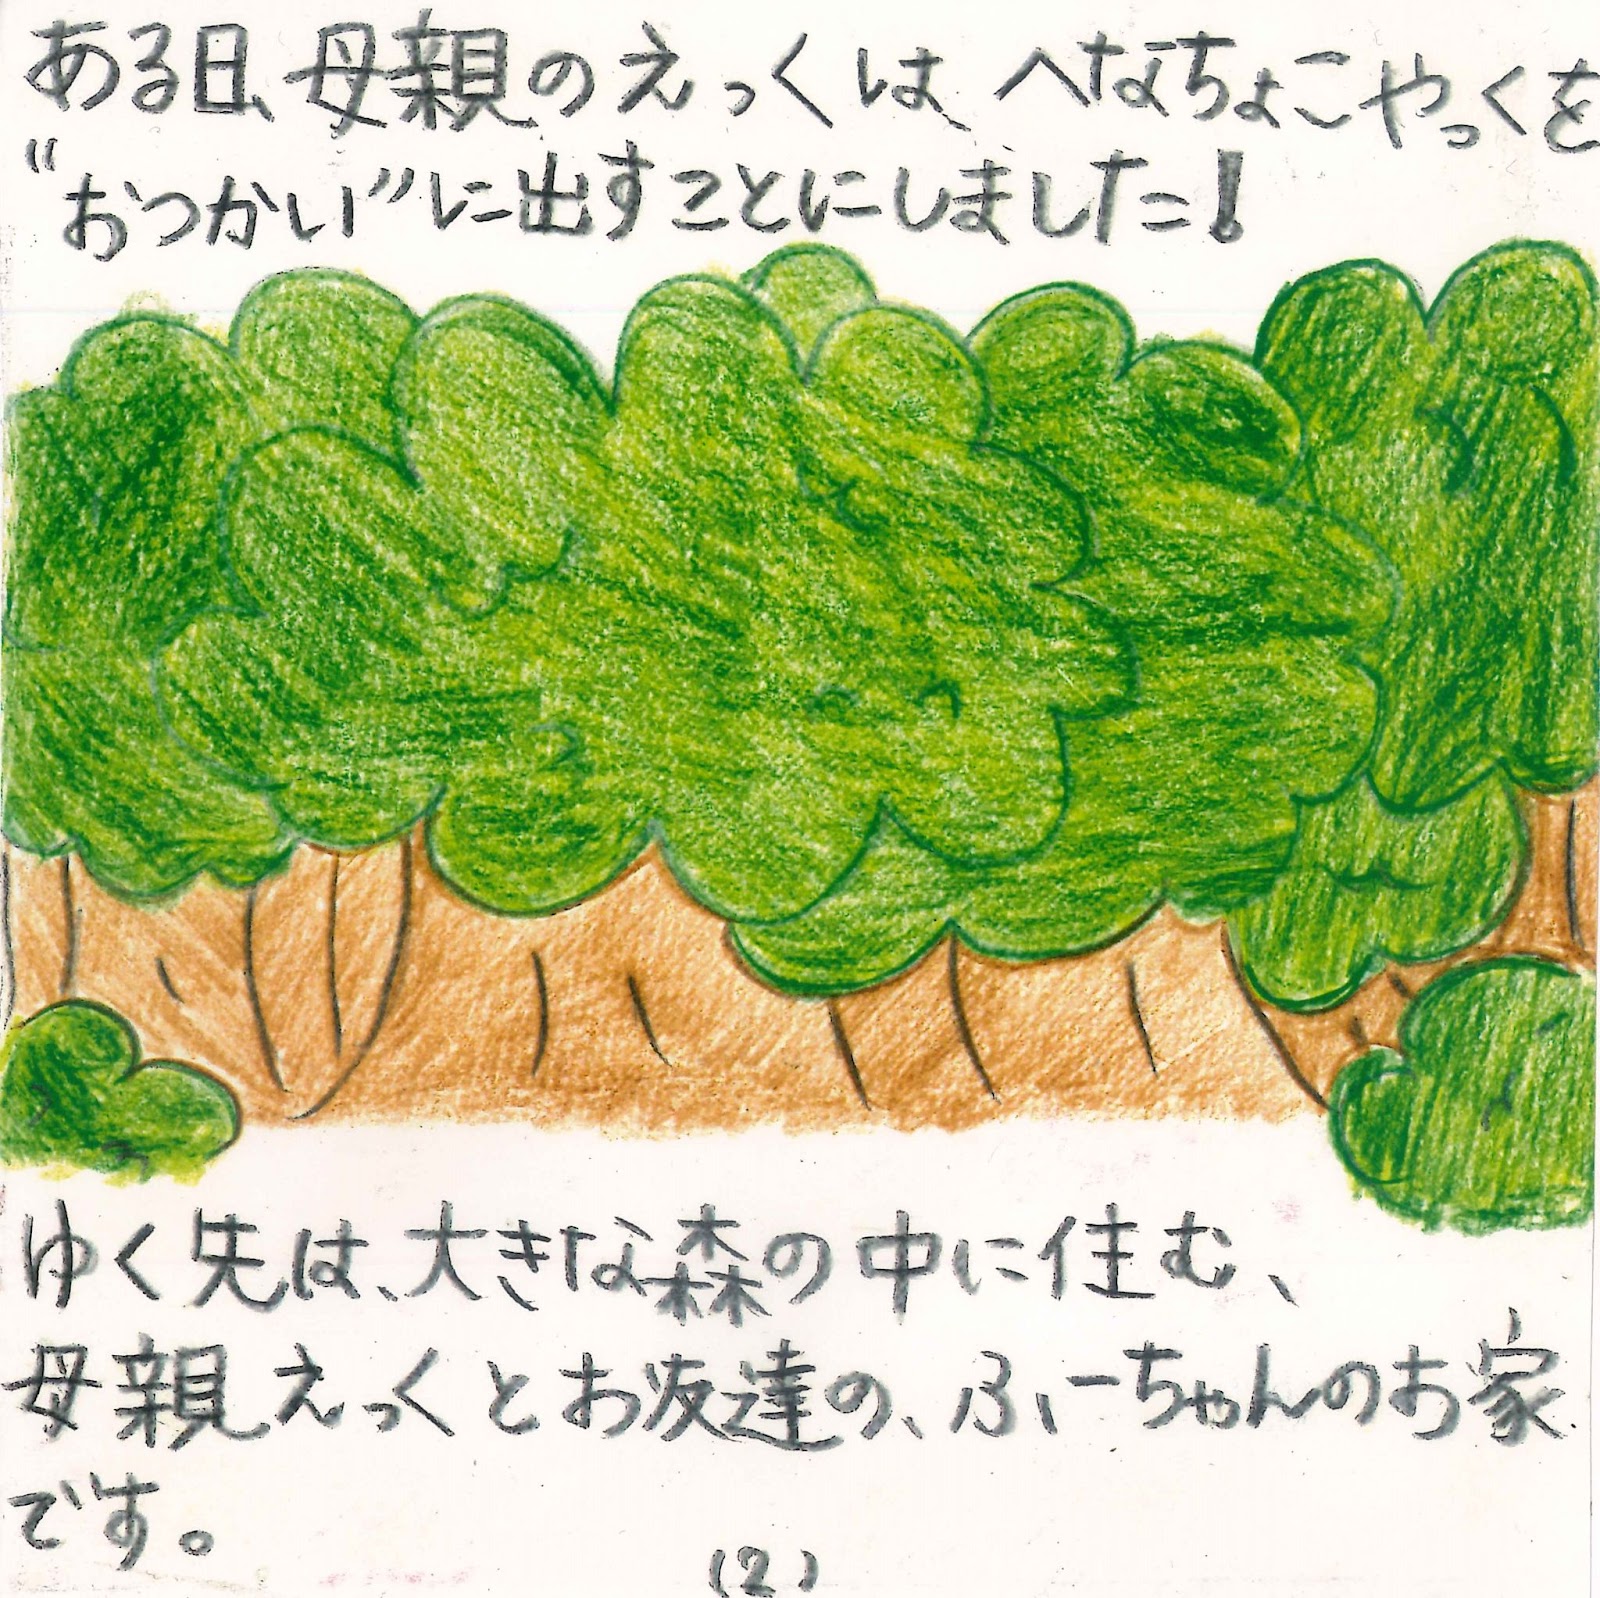 ある日、母親のえっくは、へなちょこやっくを
“おつかい”に出すことにしました！
ゆく先は、大きな森の中に住む、
母親えっくとお友達の、ふぃーちゃんのお家
です。
(2)